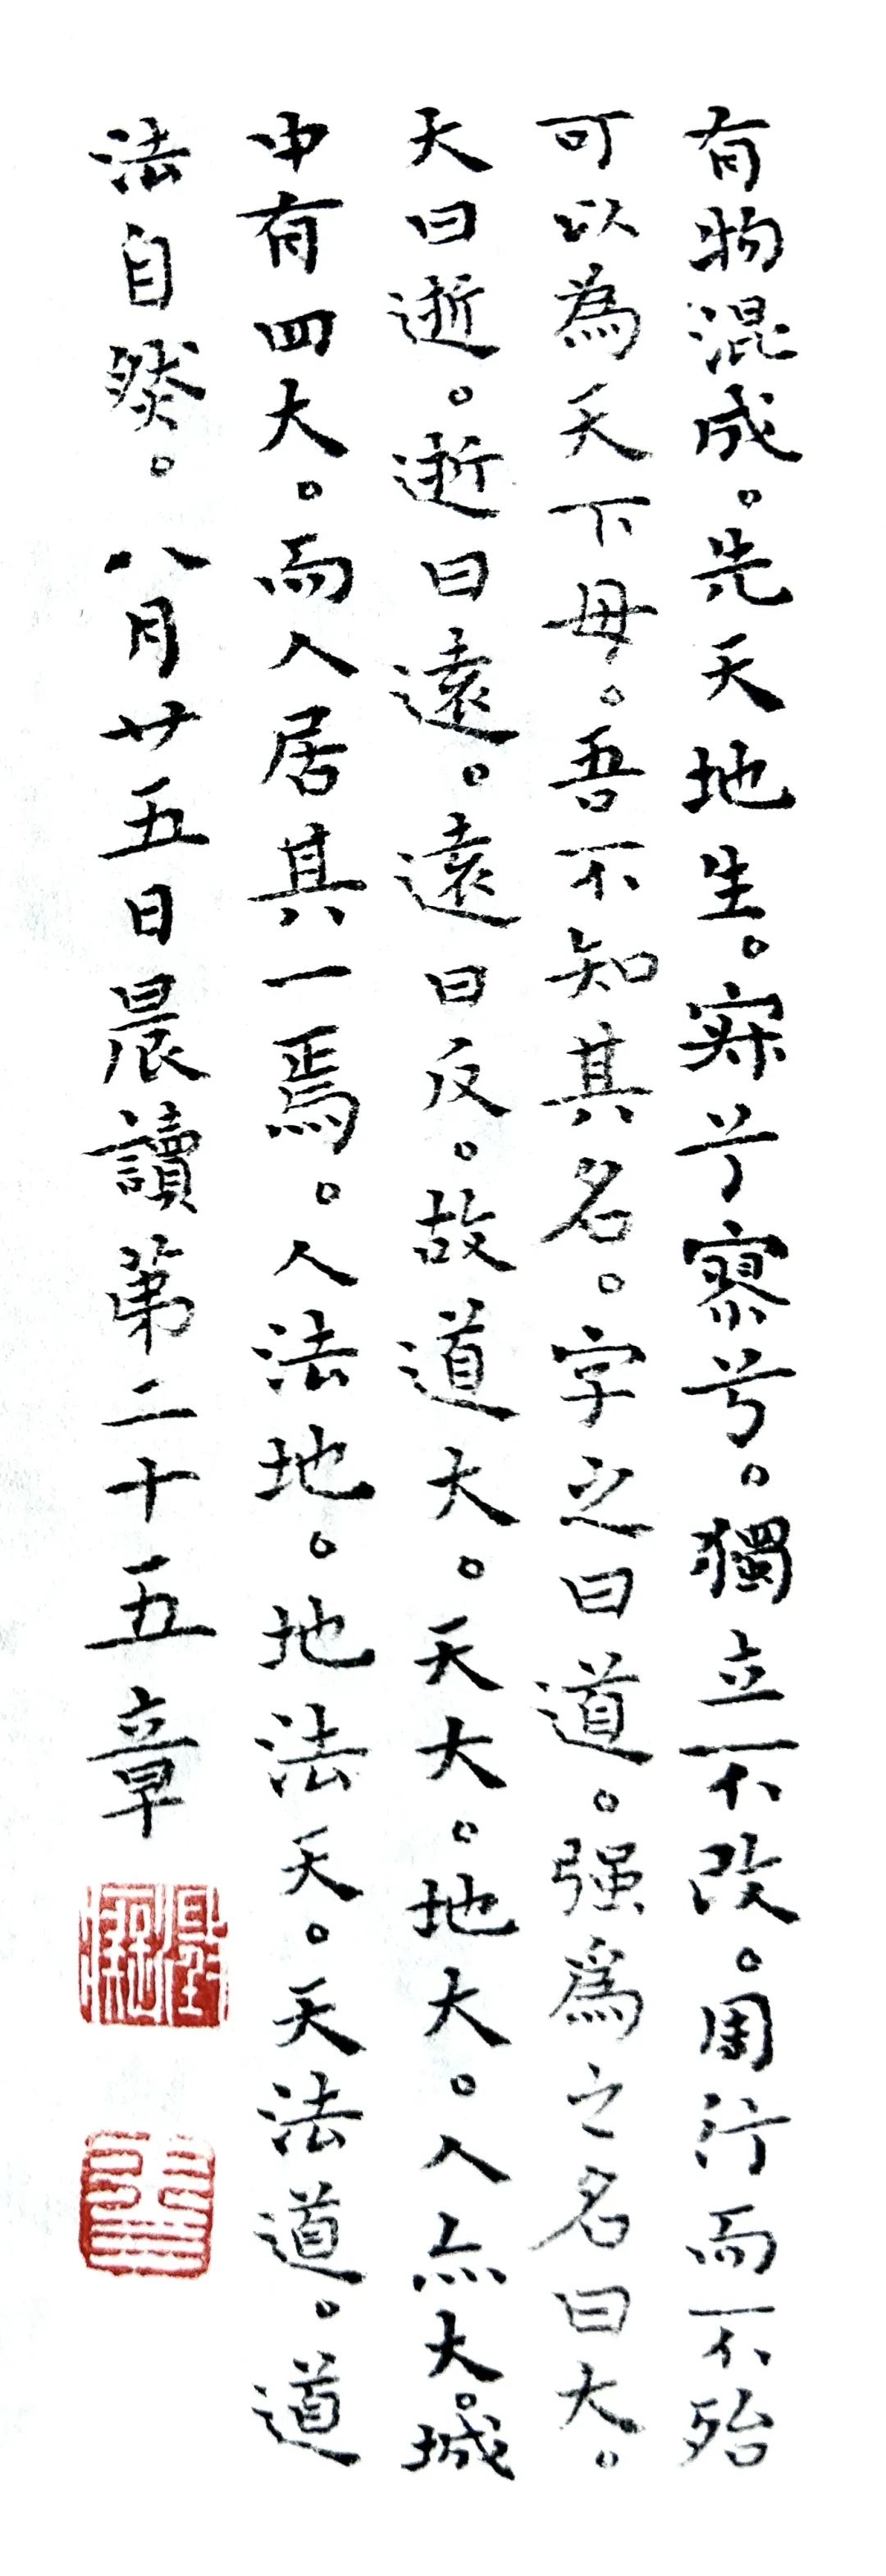 有物混成。先天地生。寂兮寥兮。獨立不改。周行而不殆
可以為天下母。吾不知其名。字之曰道。强爲之名曰大。
大曰逝。逝曰遠。遠曰反。故道大。天大。地大。人亦大。城
中有四大。而人居其一焉。人法地。地法天。天法道。道
法自然。八月廿五日晨讀第二十五章